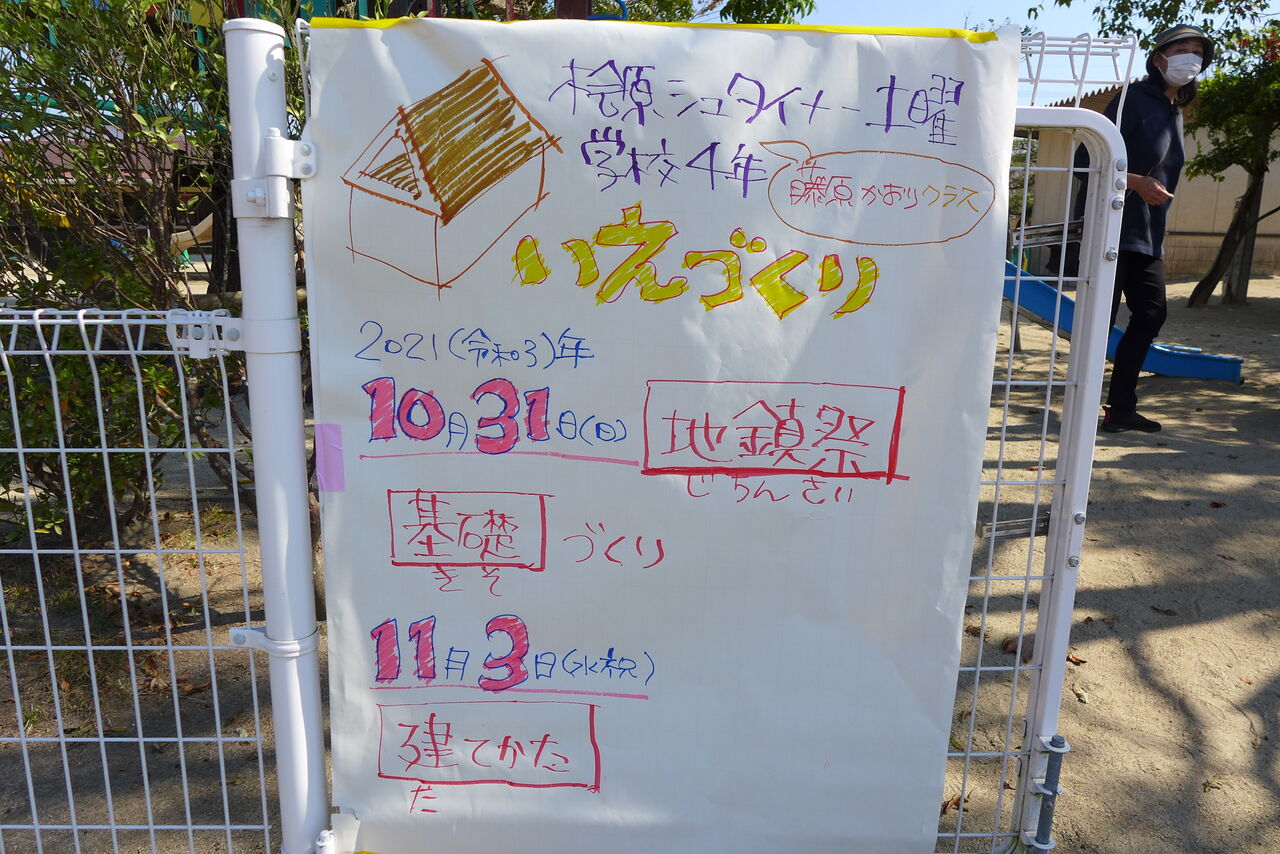 桧原シュタイナー土曜
学校4年
藤原かおりクラス
いえづくり
2021(令和3)年
10月31日(日) 地鎮祭
じちんさい
基礎づくり
きそ
11月3日(水祝)
建てかた
だ